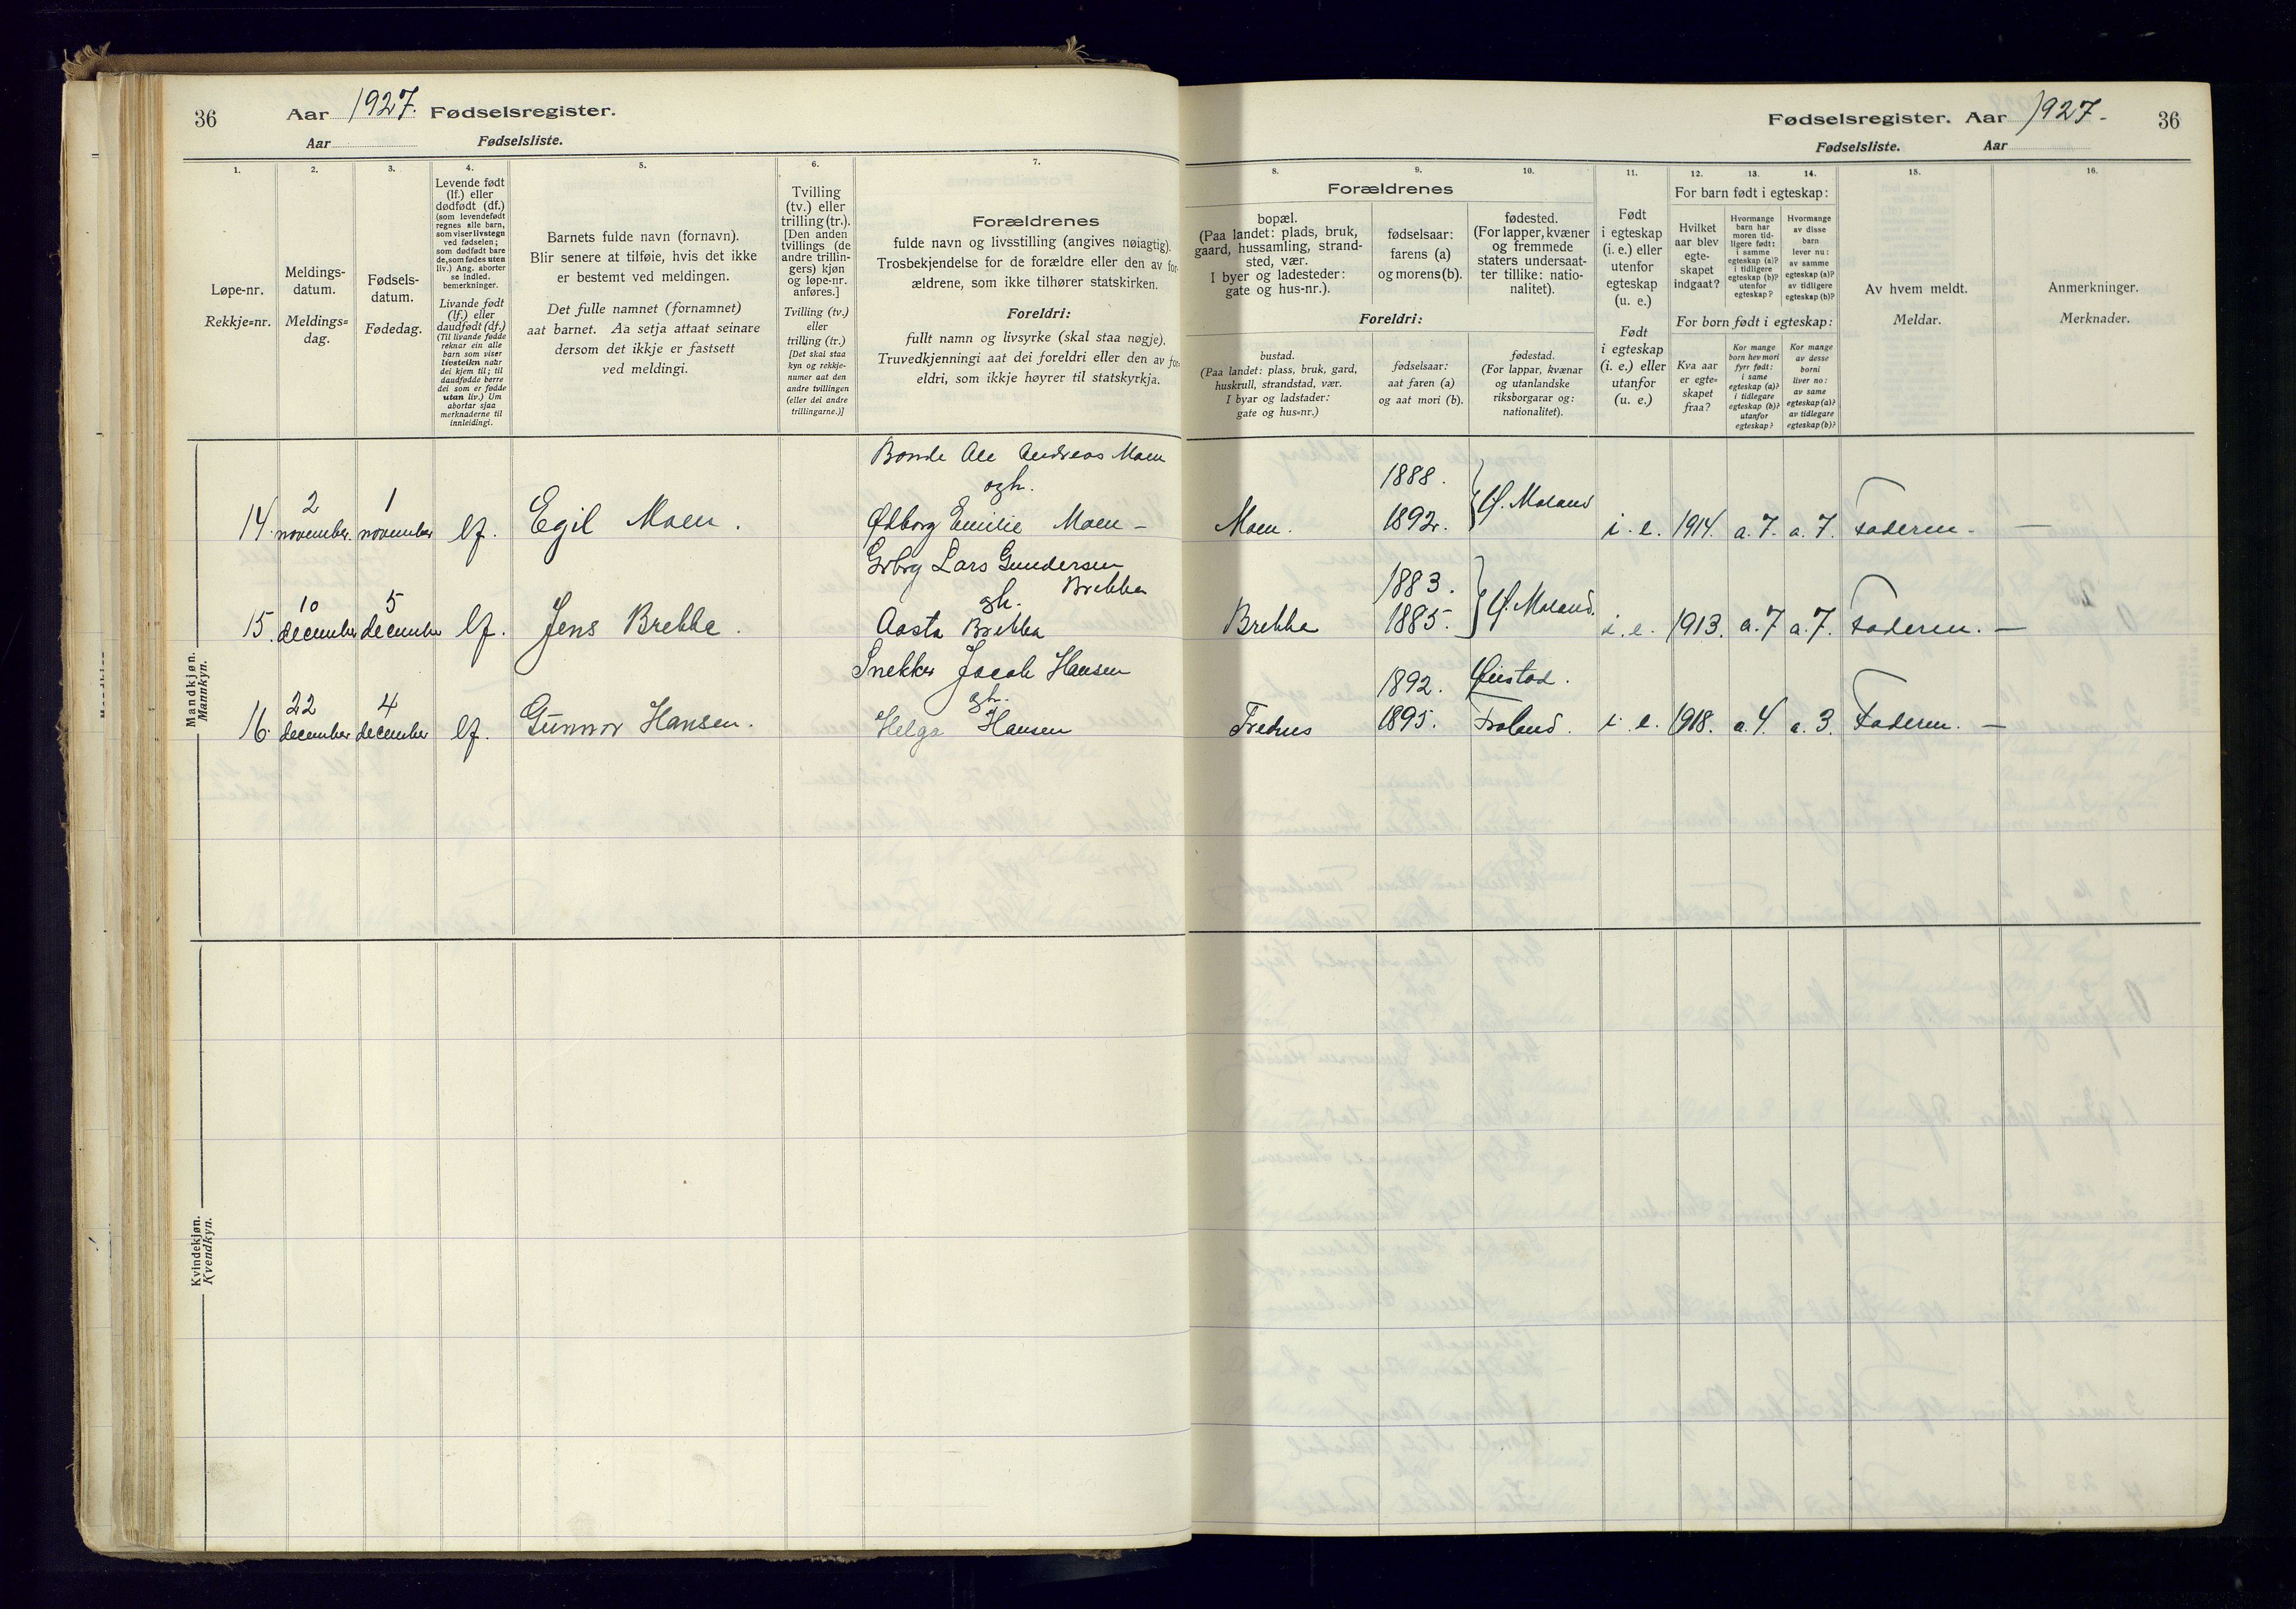 36
Aar 1927. Fødselsregister.
Aar Fødselsliste.
1.
2.
3.
4.
5.
6.
7.
Løpe-nr.
Rekkje=nr.
Meldings-
datum.
Meldings=
dag.
Fødsels-
datum.
Fødedag.
Levende født
(lf.) eller
dødfødt (df.)
(som levendefødt
regnes alle barn,
som viser livstegn
ved fødselen;
som dødfødt bare
de, som fødes uten
liv.) Ang. aborter
se indled.
bemerkninger.
Livande født
(lf.) eller
daudfødt (df.)
(Til livande fødde
reknar ein alle
barn som viser
livsteikn naar
dei kjem til; til
daudfødde berre
dei som er fødde
utan liv.) Um
abortar sjaa
merknaderne til
innleidingi.
Barnets fulde navn (fornavn).
Blir senere at tilføie, hvis det ikke
er bestemt ved meldingen.
Det fulle namnet (fornamnet)
aat barnet. Aa setja attaat seinare
dersom det ikkje er fastsett
ved meldingi.
Tvilling
(tv.) eller
trilling (tr.).
[Den anden
tvillings (de
andre trillin-
gers) kjøn
og løpe-nr.
anføres.]
Tvilling (tv.)
eller
trilling (tr.)
[Det skal staa
kyn og rekkje-
numer aat den
andre tvillingen
(eller dei andre
trillingarne.)]
Forældrenes
fulde navn og livsstilling (angives nøiagtig).
Trosbekjendelse for de forældre eller den av for-
ældrene, som ikke tilhører statskirken.
Foreldri:
fullt namn og livsyrke (skal staa nøgje).
Truvedkjenningi aat dei foreldri eller den av for-
eldri, som ikkje høyrer til statskyrkja.
Mandkjøn.
Mannkyn.
Bonde Ole Andreas Moen
ogh.
14. 2 november. 1 november lf. Egil Moen. Ødborg Emilie Moen –
Grbrg Lars Gundersen
Brekka
gh.
15. 10 december 5 december lf. Jens Brekke. Aasta Brekka
Snekker Jacob Hansen
gh.
16. 22 december 4 december lf. Gunnar Hansen. Helga Hansen
Kvindekjøn.
Kvendkyn.
Fødselsregister. Aar 1927.
36
Fødselsliste. Aar
8.
9.
10.
11.
12.
13.
14.
15.
16.
Forældrenes
bopæl.
(Paa landet: plads, bruk,
gaard, hussamling, strand-
sted, vær.
I byer og ladesteder:
gate og hus-nr.).
fødselsaar:
farens (a)
og morens (b).
fødested.
(For lapper, kvæner
og fremmede
staters undersaat-
ter tillike: natio-
nalitet).
Foreldri:
bustad.
(Paa landet: plass, bruk, gard,
huskrull, strandstad, vær.
I byar og ladstader:
gate og hus=nr.)
fødselsaar:
aat faren (a)
og aat mori (b).
fødestad.
(For lappar, kvænar
og utanlandske
riksborgarar og:
nationalitet).
Født
i egteskap
(i. e.) eller
utenfor
egteskap
(u. e.)
Født
i egteskap
(i. e.) eller
utanfor
(u. e.)
For barn født i egteskap:
Hvilket
aar blev
egte-
skapet
indgaat?
Hvormange
barn har
moren tid-
ligere født:
i samme
egteskap (a)?
i tidligere
egteskap (b)?
utenfor
egteskap?
Hvormange
av disse
barn
lever nu:
av samme
egteskap (a)?
av tidligere
egteskap (b)?
For born født i egteskap:
Kva aar
er egte=
skapet
fraa?
Kor mange
born hev mori
fyrr født:
i same
egteskap (a)?
i tidlegare
egteskap (b)?
utanfor
egteskap?
Kor mange
av desse
borni
liver no:
av same
egteskap (a)?
av tidlegare
egteskap (b)?
Av hvem meldt.
Meldar.
Anmerkninger.
Merknader.
1888.
Moen. 1892. } Ø. Moland i. e. 1914. a. 7. a. 7. Faderen. –
1883.
Brekke 1885. } Ø. Moland. i. e. 1913. a. 7 a. 7. Faderen. –
1892. Øiestad.
1895. Froland. i. e. 1918. a. 4. a. 3. Faderen. –